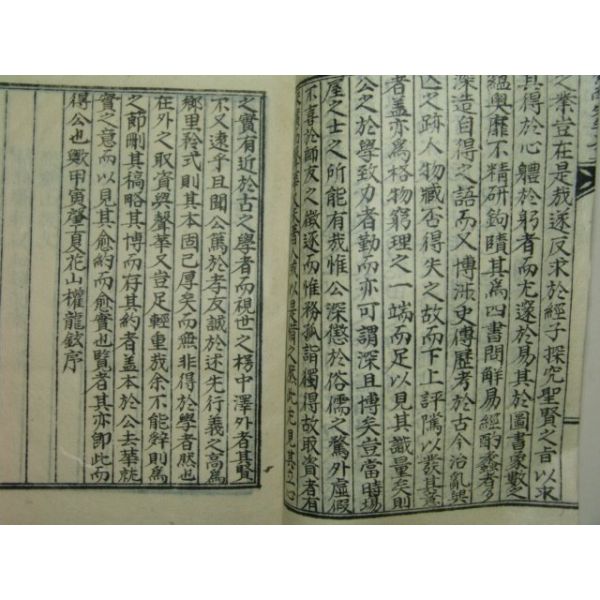 之業豈在是哉遂反求於經子探究聖賢之言以求
其得於心體於躬者而尤邃於易其於圖書象數之
蘊奧靡不精研鉤賾其爲四書問解易經酌蠡者多
深造自得之語而又博漁史傳歷考於古今治亂興
亡之跡人物臧否得失之故而下上評隲以發其
者盖亦爲格物窮理之一端而足以見其識量矣則
公之於學致力者勤而亦可謂深且博矣豈當時場
屋之士之所能有哉惟公深懲於俗儒之騖外虛假
不喜於師友之徵逐而惟務孤詣獨得故取資者有
之實有近於古之學者而視世之楞中澤外者其賢
不又遠乎且聞公篤於孝友誠於述先行義之高爲
鄉里矜式則其本固已厚矣而無非得於學者然也
在外之取資與聲華又豈足輕重哉余不能辭則爲
之節刪其稿略其博而存其約者盖本於公去華就
實之意而以見其愈約而愈實也覽者其亦卽此而
得公也歟甲寅肇夏花山權龍鉉序